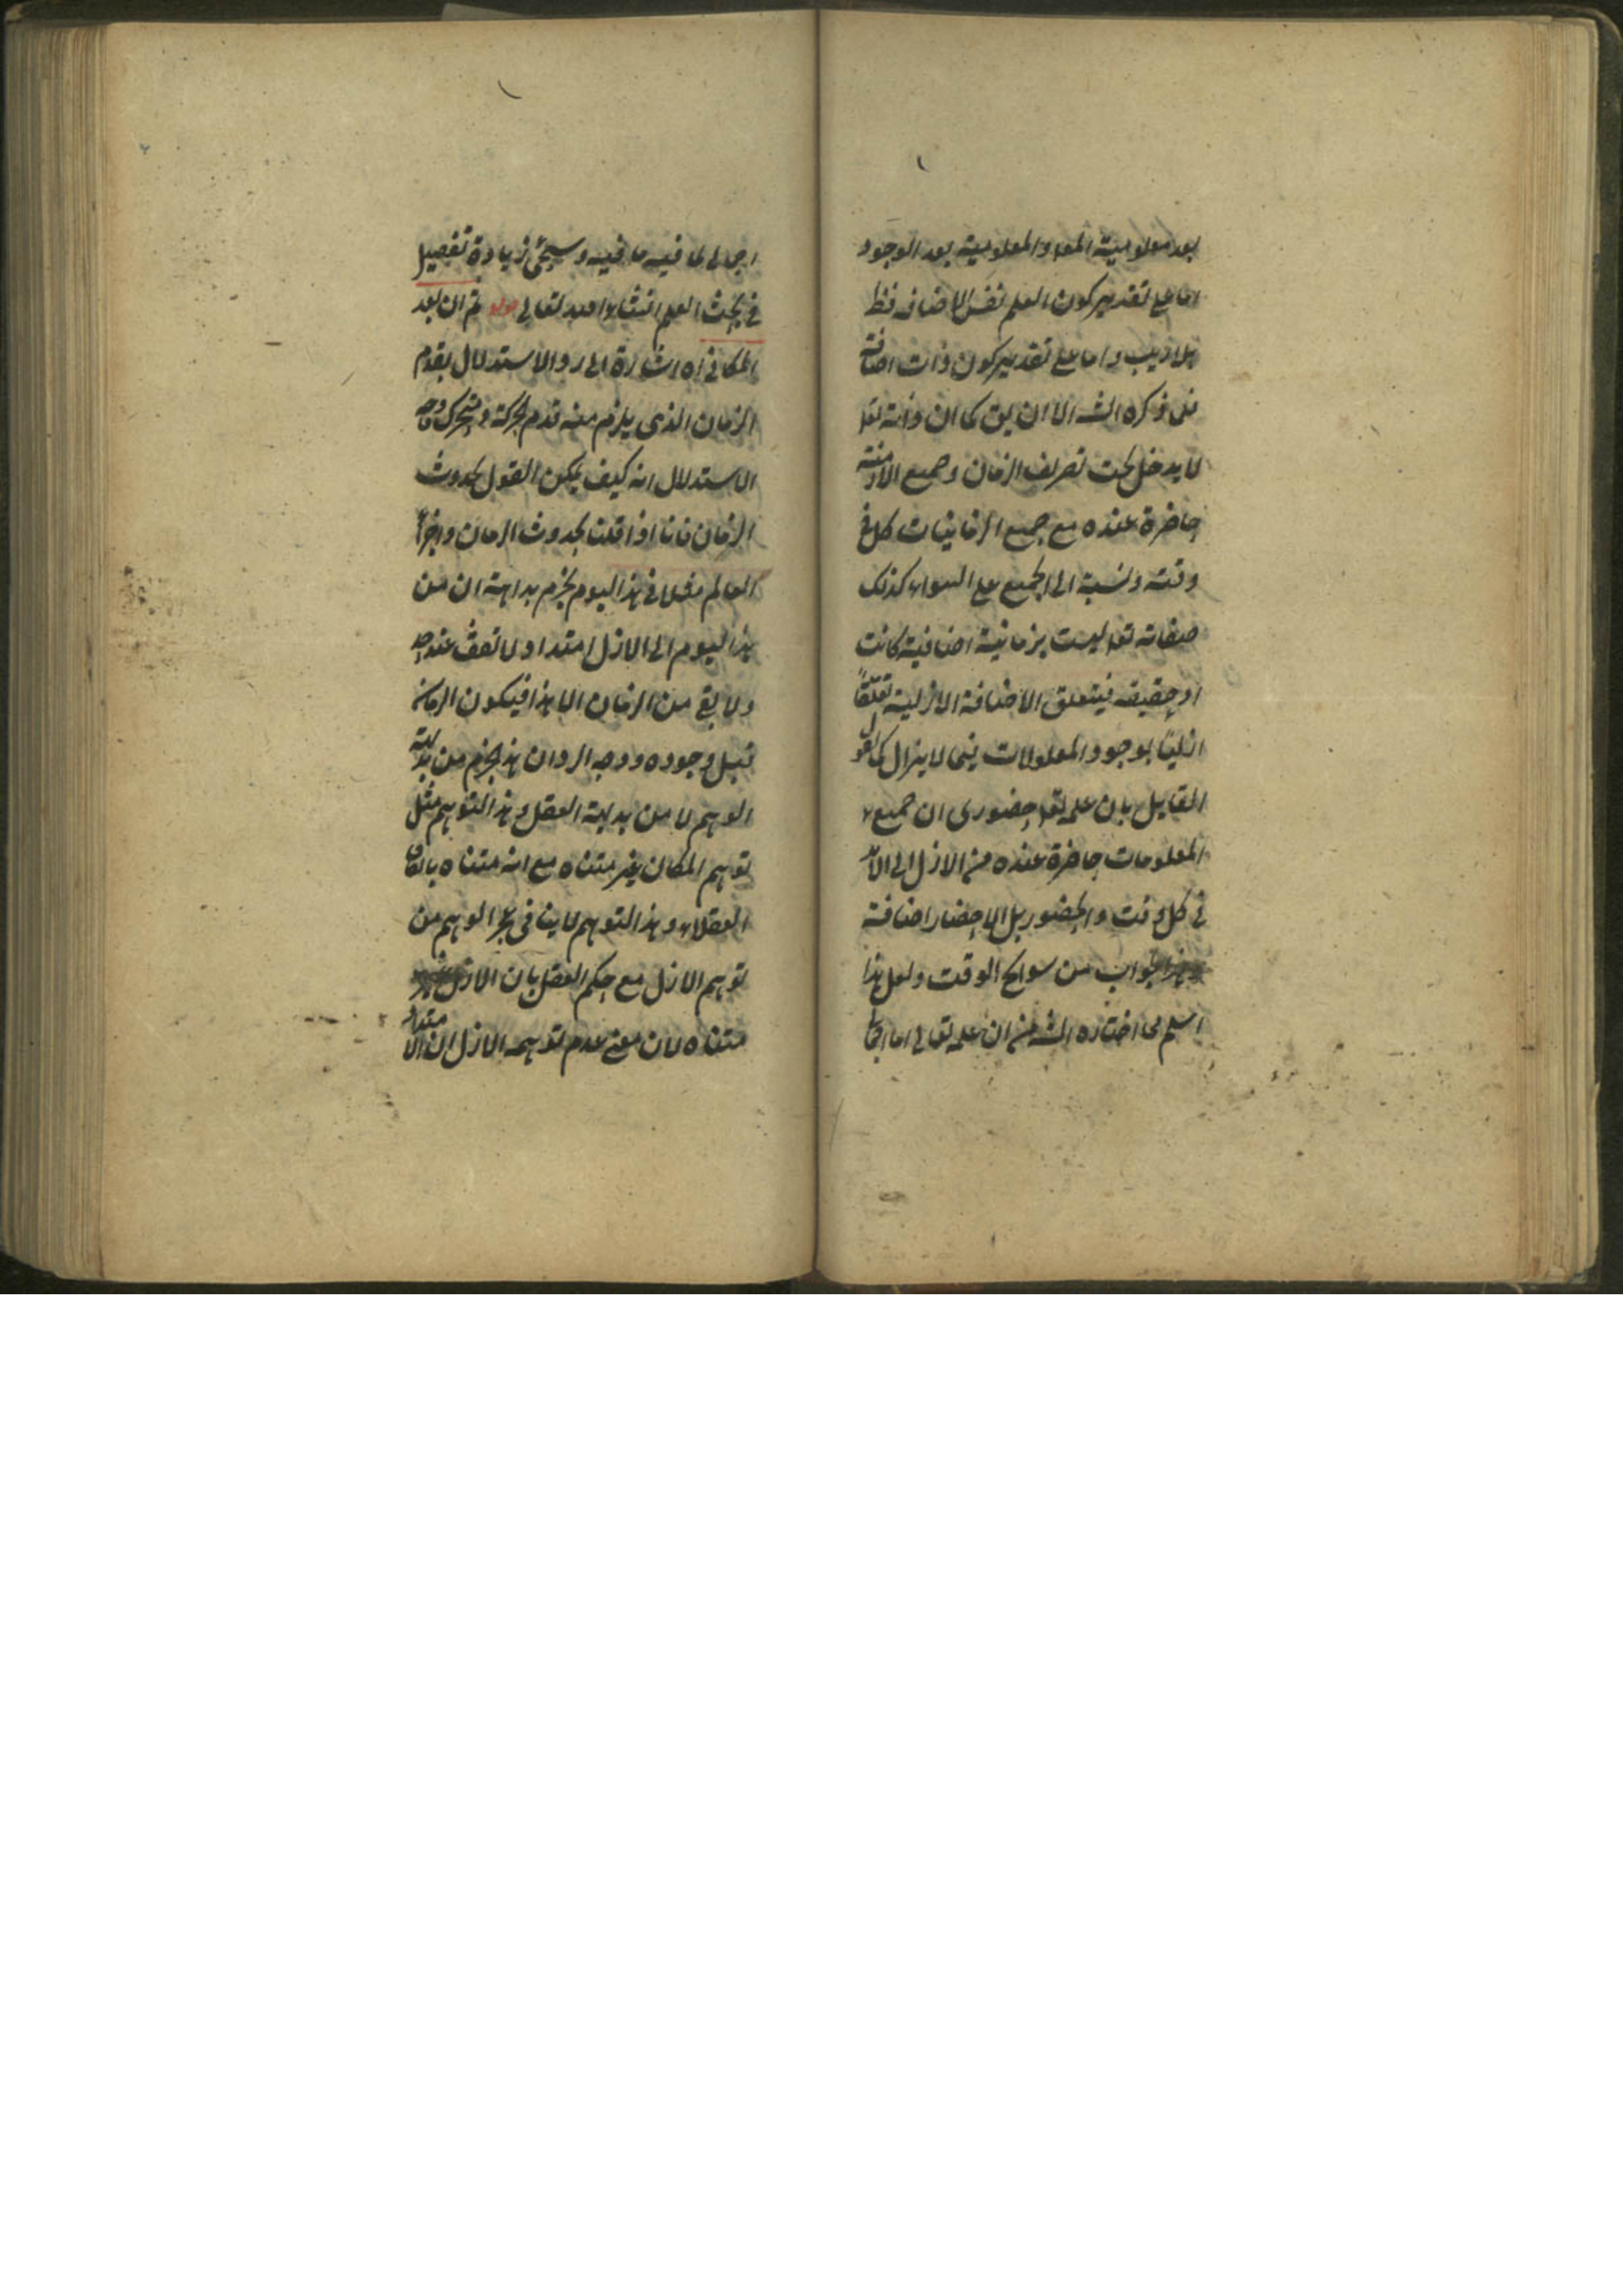 بعد معلومية المعد والمعلومية بعد الوجود
اما على تقدير كون العلم نفس الاضافة فظ
بلا ريب واما على تقدير كون ذات اضافة
فلما ذكره الشه الا ان يق كما ان ذاته تعا
لا يدخل تحت تصرف الزمان وجميع الازمنة
حاضرة عنده مع جميع الزمانيات كل في
وقته ونسبة الى الجميع على السواء كذلك
صفاته تعا ليست بزمانية اضافية كانت
او حقيقه فيتعلق الاضافة الازلية تعلقاً
ازلياً بوجود المعلولات فيما لا يزال كما يقول
القايل بان علمه تعا حضوري ان جميع
المعلومات حاضرة عنده من الازل الى الابد
في كل وقت والحضور بل الاحضار اضافة
وهذا جواب من سوانح الوقت ولعل هذا
اسلم مما اختاره الشه من ان علمه تعالى اما
اجمالي لما فيه ما فيه وسيجئ زيادة تفصيل
في بحث العلم انشاء الله تعالى قوله ثم ان البعد
المكاني اه اشارة الى رد الاستدلال بقدم
الزمان الذي يلزم منه قدم الحركة والمتحرك وجه
الاستدلال انه كيف يمكن القول بحدوث
الزمان فانا اذا قلنا بحدوث الزمان واجزاء
العالم مثلا في هذا اليوم نجزم بداهة ان من
هذا اليوم الى الازل امتداد لا تقف عند حد
ولا يق من الزمان الا هذا فيكون الزمان
قبل وجوده ووجه الرد ان هذا الجزم من بداهة
الوهم لا من بداهة العقل وهذا التوهم مثل
توهم المكان غير متناه مع انه متناه باتفاق
العقلاء وهذا التوهم لا ينافي عجز الوهم من
توهم الازل مع حكم العقل بان الازل
متناه لان معنى عدم توهمه الازل ان الامتداد